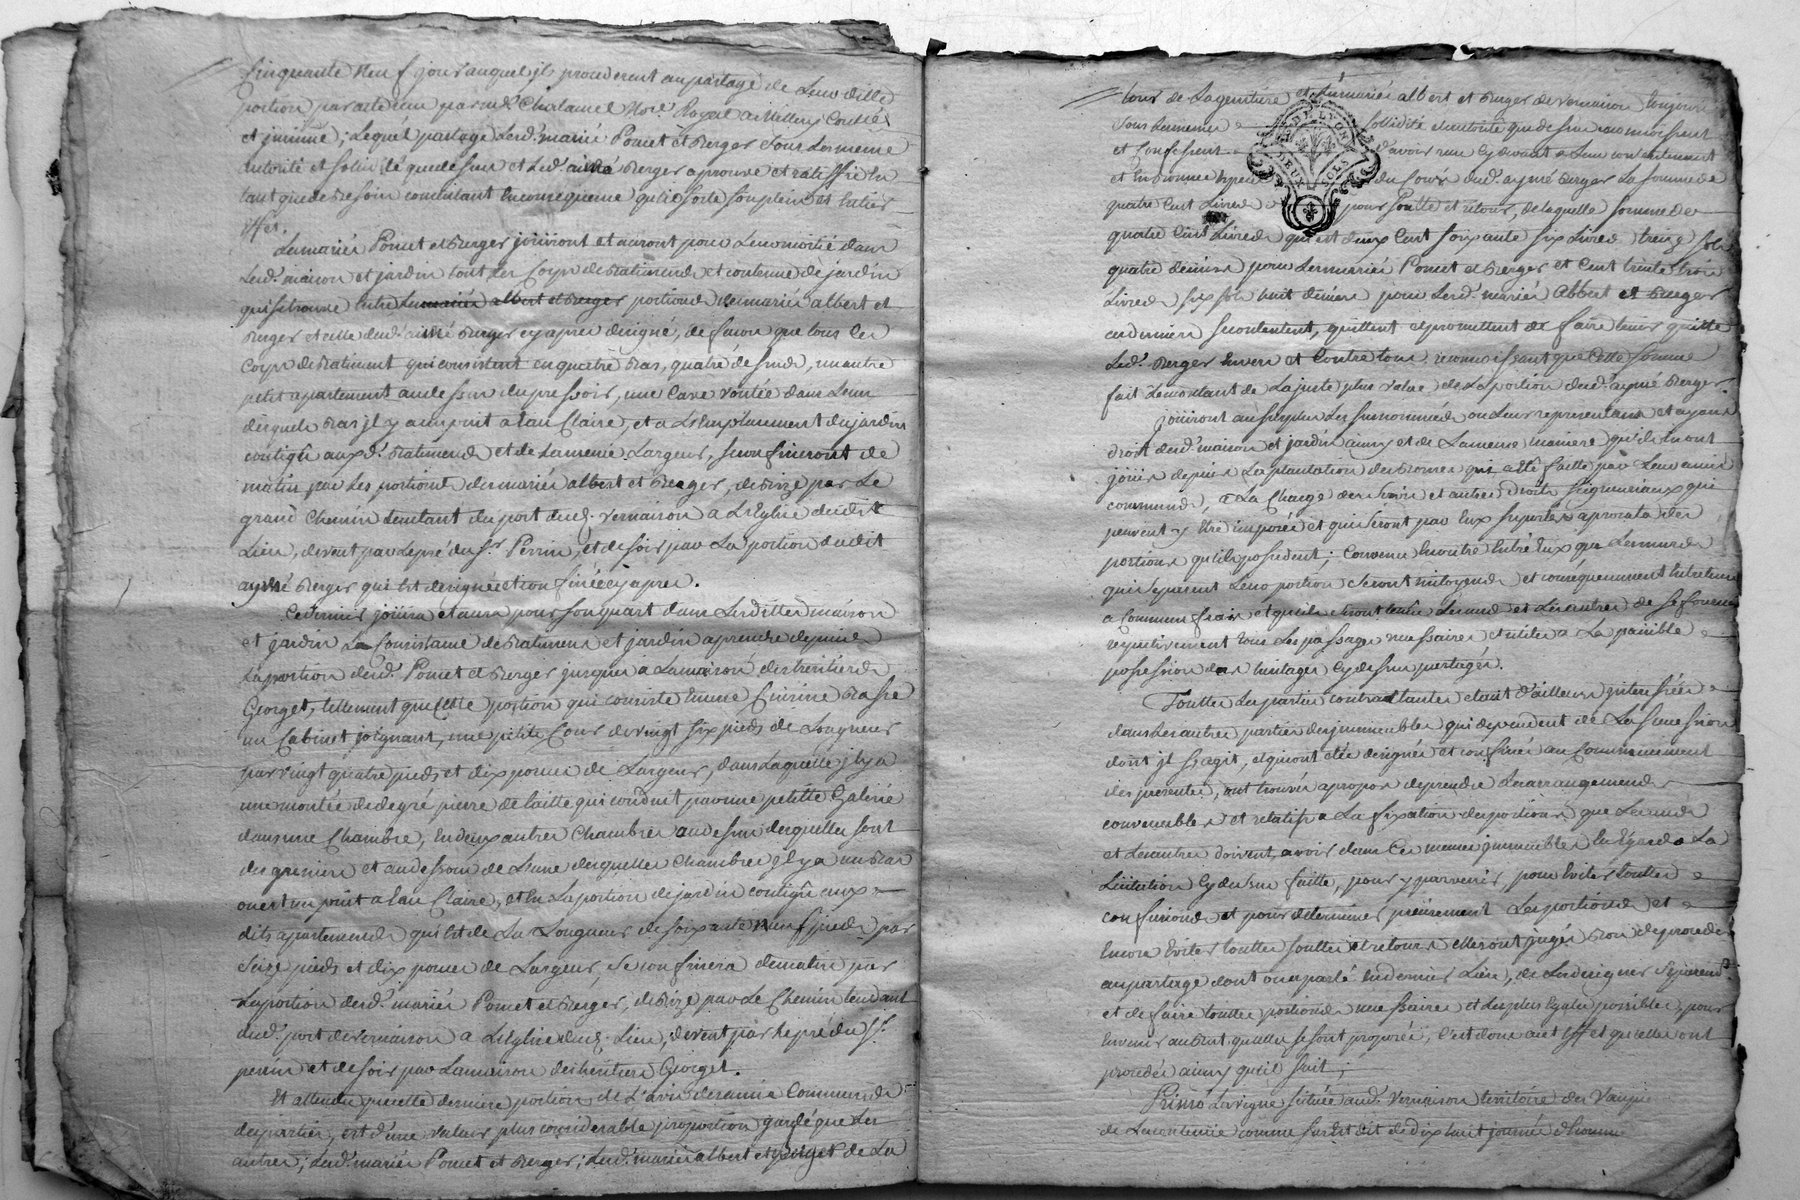 Cinquante neuf jour auquel jls procederent au partage de leur ditte
portion par acte reçu par md. Chatanel Nore. Royal a Millery Controllé
et jnsinué; lequel partage lesd. mariés Poncet et Berger sous les meme
autorité et solidité que dessus et led. aimé Berger aprouve et ratiffie en
tant que de besoin consentant en consequence qu'il sorte son plein et entier
effet.
Les mariés Poncet et Berger jouiront et auront pour leur moitié dans
lesd. maison et jardin tout les corps de Batiments et contenue de jardin
qui se trouve entre les mariés albert et Berger portions des mariés albert et
Berger et celle dud. aimé Berger cy apres designé, de facon que tous les
corps de Batiment qui consistent en quatre Bas, quatre dessus, un autre
petit apartement au dessus du pressoir, une Cave voutée dans l'un
desquels Bas jl y a un puit a Eau Claire, et a l'Emplacement du jardin
contigû auxd. Batiments et de la meme largeur, se confineront de
matin par les portions des mariés albert et Berger, de Bize par le
grand Chemin tendant du port dud. Vernaison a l'Eglise dudit
Lieu, de vent par le pré du Sr. Perrin, et de soir par la portion dudit
aymé Berger qui est designée et confinée cy apres.
Ce dernier jouira et aura pour son quart dans lesdittes maison
et jardin la Consistance de Batiment et jardin a prendre depuis
la portion desd. Poncet et Berger jusques a la maison des heritiers
Georget, tellement que cette portion qui consiste en une Cuisine Basse
un Cabinet joignant, une petite Cour de vingt six pieds de longueur
par vingt quatre pieds et dix pouces de largeur, dans laquelle jl y a
une montée de degré pierre de taille qui conduit par une petitte Galerie
dans une Chambre, en deux autres Chambres au dessus desquelles sont
des greniers et au dessous de l'une desquelles Chambres jl y a un Bas
ou est un puit a Eau Claire, et en la portion de jardin contigû aux
dits apartements qui est de la longueur de soixante neuf pieds par
seize pieds et dix pouces de largeur, se confinera de matin par
la portion desd. mariés Poncet et Berger, de Bize par le Chemin tendant
dud. port de Vernaison a l'Eglise dud. Lieu, de vent par le pré du Sr.
perrin et de soir par la maison des heritiers Georget.
Et attendu que cette derniere portion de l'avis des amis Communs
des parties, est d'une valeur plus considerable proportion gardé que les
autres; lesd. mariés Poncet et Berger; lesd. mariés albert et Berger de la
tour de Lagentiere et mariés albert et Berger de Vernaison toujours
sous les memes sollidité et autorité que dessus reconnoissent
et Confessent d'avoir reçu cy devant a leur contentement
et en Bonne Especes du Cours dud. aymé Berger la somme de
quatre Cent Livres pour soulte et retour, de laquelle somme de
quatre Cent Livres qui est deux Cent soixante six Livres treize sols
quatre deniers pour les mariés Poncet et Berger et Cent trente trois
Livres six sols huit deniers pour lesd. mariés Albert et Berger
ces derniers se contentent, quittent et promettent de faire tenir quitte
led. Berger Envers et Contre tous reconnoissant que Cette somme
fait le montant de la juste plus value de la portion dud. aymé Berger.
Jouiront au surplus les susnommés ou leurs representans et ayans
droit desd. maison et jardin ainsy et de la meme maniere qu'ils en ont
jouis depuis la plantation des Bornes qui a eté faitte par leurs amis
communs, a la Charge des servis et autres droits seigneuriaux qui
peuvent y Etre imposés et qui seront par Eux suportés a prorata des
portions qu'ils possedent; Convenu en outre Entre Eux que les murs
qui separent leurs portions seront mitoyens et consequemment Entretenus
a Communs frais et qu'ils seront tenus les uns et les autres de se fournir
respectivement tous les passages necessaires et utiles a la paisible
possession des heritages cy dessus partagés.
Touttes les parties contractantes etant d'ailleurs jnteressées
dans les autres parties des jmmeubles qui dependent de la succession
dont jl s'agit, et qui ont eté designés et confinés au Commencement
des presentes, ont trouvé a propos de prendre les arrangements
convenables et relatifs a la fixation des portions que les uns
et les autres doivent avoir dans Ces memes jmmeubles Eu Egard a la
Licitation cy dessus faitte, pour y parvenir, pour Eviter touttes
confusions et pour determiner precisement les portions et
Encore Eviter touttes soultes et retours elles ont jugés Bon de proceder
au partage dont on a parlé en dernier Lieu, de les designer separement
et de faire touttes portions necessaires et les plus Egales possibles, pour
En venir au But qu'elles se sont proposés, C'est donc a cet Effet qu'elles ont
procedés ainsy qu'il suit;
Primo La vigne située aud. Vernaison territoire des Vaupres
de la contenue comme sus est dit de dix huit journées d'homme
DE LYON
DEUX SOLS